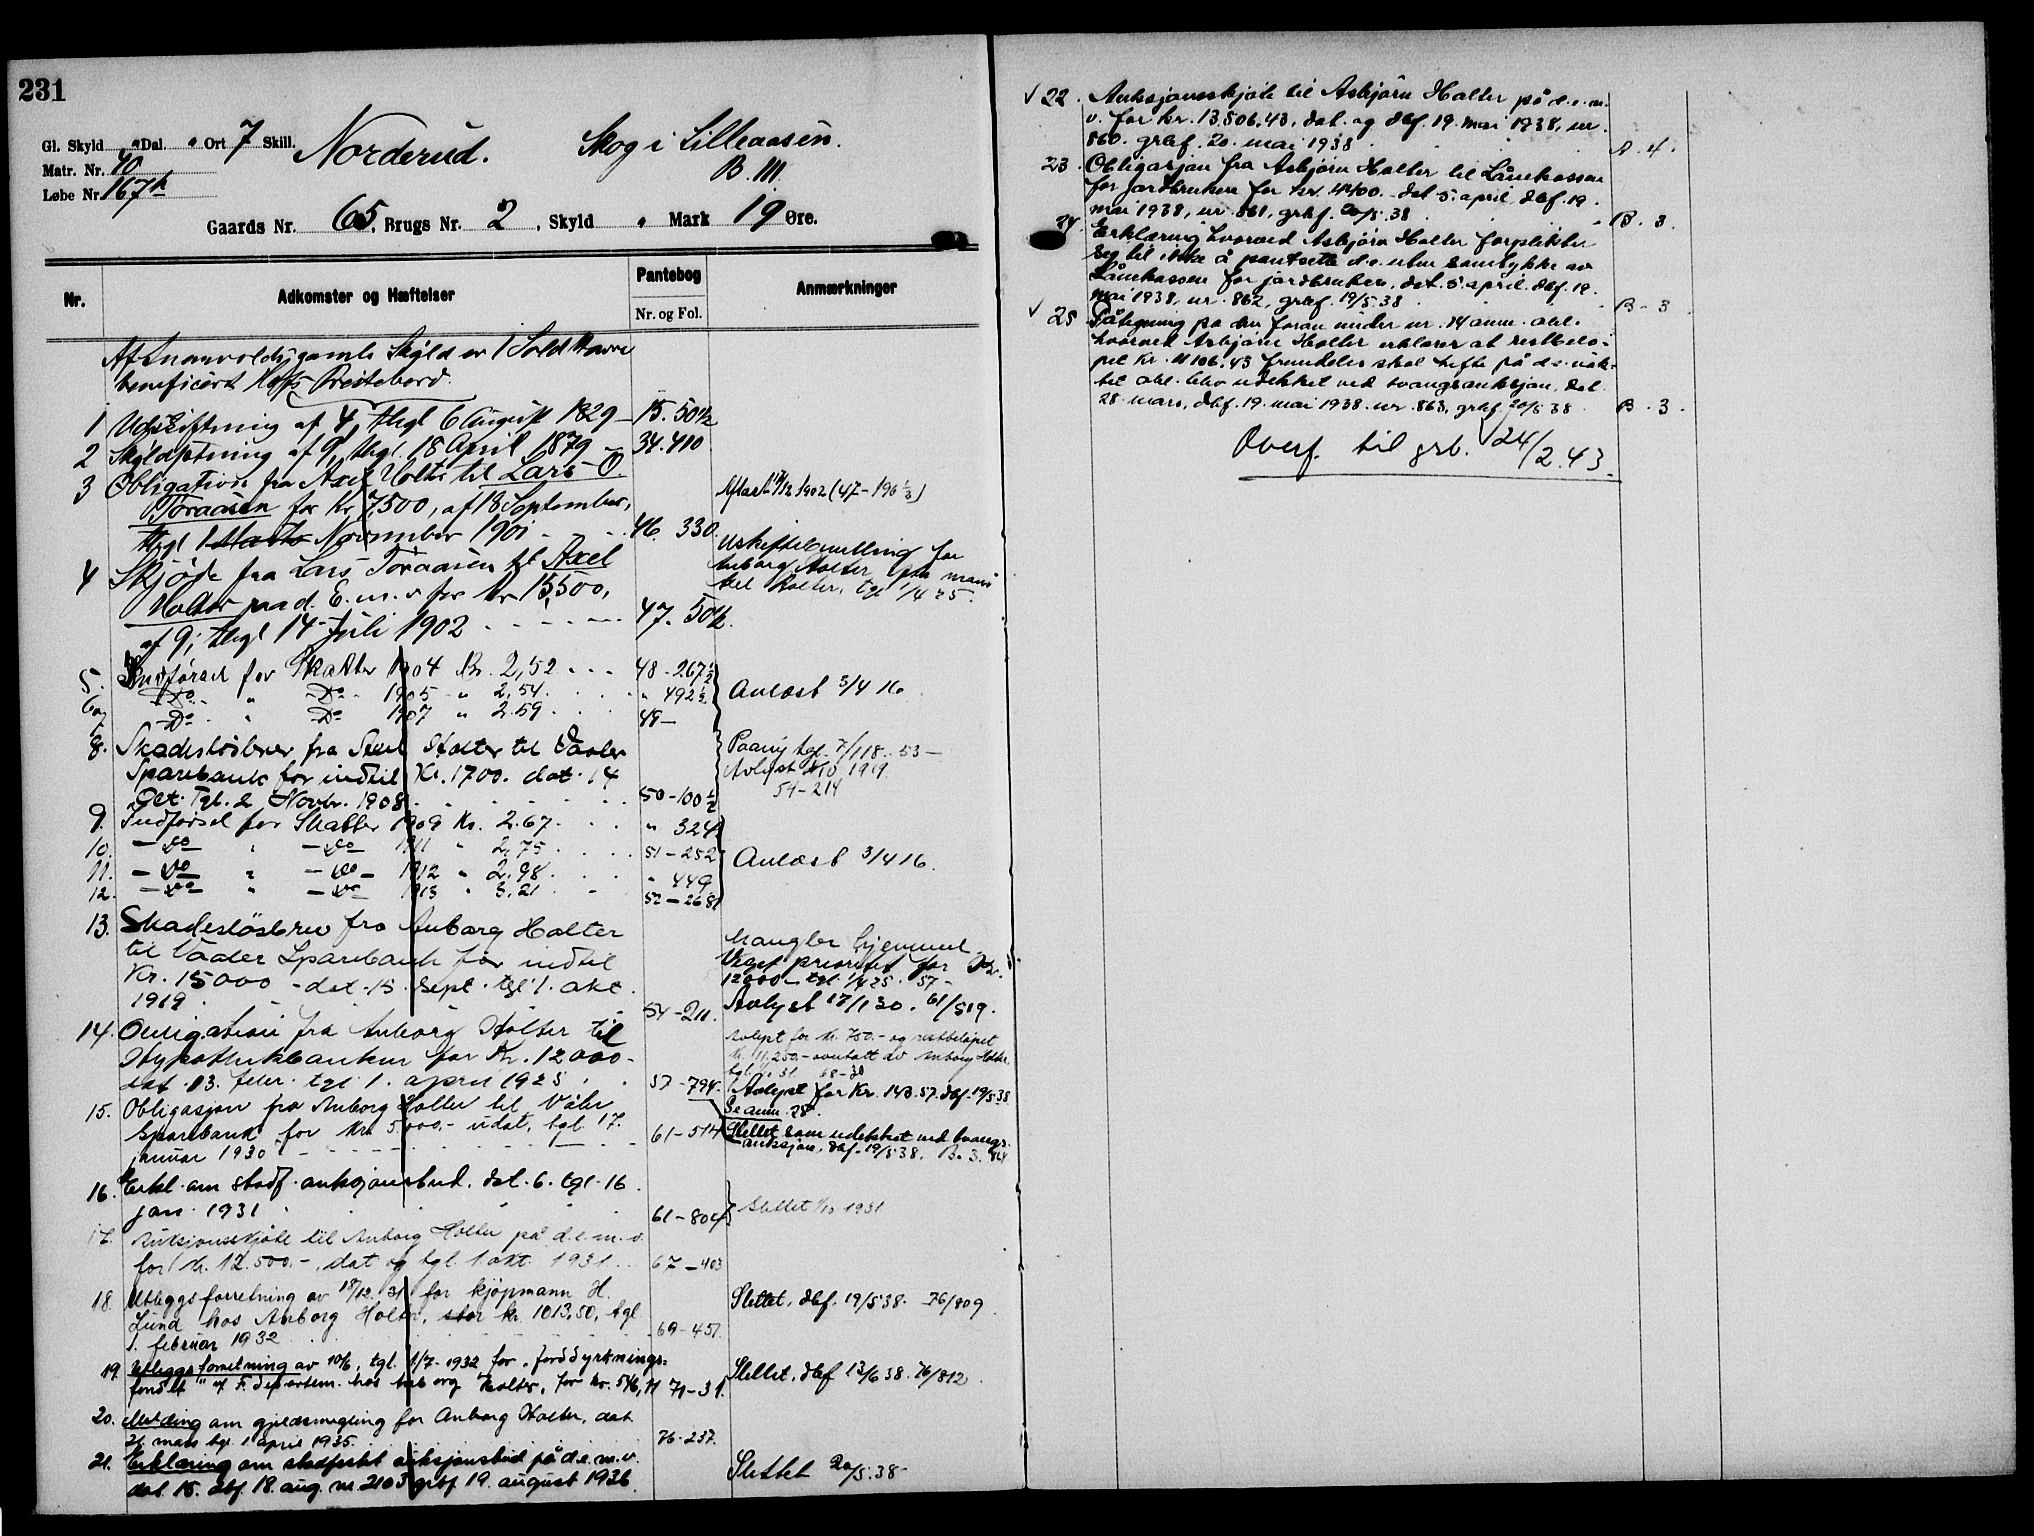 231
Gl. Skyld " Dal. " Ort 7 Skill. Norderud. Skog i Lilleaasen.
Matr. Nr. 40 B. III.
Løbe Nr. 167 h
Gaards Nr. 65, Brugs Nr. 2, Skyld " Mark 19 Øre.
Nr. Adkomster og Hæftelser Pantebog Anmærkninger
Nr. og Fol.
gamle Skyld er 1 Sold Havre
beneficeret Præstebord.
1 Udskiftning af 4, thgl 6 August 1829 – 15. 50 1/2
2 Skyldsætning af 9, thgl. 18 April 1879 – 34. 410
3 Obligation fra Axel Holter til Lars O.
Toraasen for Kr 7,500, af 18 September,
thgl 1 November 1901 46. 330.
Aflæst 12 1902 (47 – 196 1/2)
4 Skjøde fra Lars Toraasen til Axel
Holter paa d. E. m. v for Kr 15,500,
af 9, thgl 14 Juli 1902 47. 50 1/2
Uskiftebevilling for
Anborg Holter, tgl 1/4 25.
5. Indførsel for Skatter 1904 Kr. 2,52 48 – 267 1/2
6 Do " Do 1905 " 2,54 " 492 1/2
7 Do " Do 1907 " 2.59 49 –
Avlæst 3/4 16
8. Skadesløsbrev fra Axel Holter til Vaaler
Sparebank for indtil Kr. 1700. dat. 14
Oct. Tgl. 2 Novbr. 1908 50 – 100 1/2
Paateg tgl. 7/1 18. 53 –
Avlyst 1/10 1919.
54 – 214
9. Indførsel for Skatter 1909 Kr. 2.67. " 324
10. – do " – do 1911 " 2,75 51 – 252
11. – do " – do – 1912 " 2,98 " 449
12. – do " – do 1913 " 3,21 52 – 268
Avlæst 3/4 16.
13. Skadesløsbrev fra Anborg Holter
til Vaaler Sparebank for indtil
Kr. 15000 – dat. 15. Sept. tgl 1. okt.
1919. 54 – 211.
Mangler hjemmel
Veget prioritet for Kr.
12000 – tgl. 1/4 25. 57 –
Avlyst 17/1 30. 61/519.
14. Obligation fra Anborg Holter til
Hypothekbanken for Kr. 12000 –
dat. 13. febr. tgl 1. april 1925 57 – 794.
Avlyst for kr. 750.– og restbeløpet
kr. 11,250 – overtatt av Anborg Holter.
Avlyst for Kr. 143.57. dbf. 19/5 38
Se anm. 25.
15. Obligasjon fra Anborg Holter til Våler
Sparebank for Kr. 5000.– udat, tgl. 17.
januar 1930 61 – 514
Slettet som udekket ved tvangs-
auksjon, dbf. 19/5 38. B. 3. 864
16. Erkl. om stadf. auksjonsbud. dat. 6. tgl. 16
jan. 1931 61 – 804
Slettet 1/10 1931
17. Auksjonsskjøte til Anborg Holter på d.e.m.v.
for kr. 12.500.–, dat og tgl. 1. okt. 1931 67 – 403
18. Utleggsforretning av 18/12 31 for kjøpmann H.
Lund hos Anborg Holter, stor kr. 1013,50, tgl
1. februar 1932 69 – 457
Slettet, dbf. 19/5 38. 76/809
19. Utleggsforretning av 10/6, tgl. 1/7 – 1932 for "Jorddyrknings-
fondet" v/ F. departem. hos Anborg Holter, for kr. 71 – 31.
Slettet, dbf 13/6 38. 76/812.
20. Melding om gjeldsmegling for Anborg Holter, dat
21. mars tgl 1 april 1935. 76 – 237.
21. Erklæring om stadfestet auksjonsbud på d.e.m.v.
dat. 15. dbf. 18. aug. nr. 2103 grbf. 19. august 1936.
Slettet 20/5.38 –
√ 22. Auksjonsskjøte til Asbjørn Holter på d.e.m.
v. for kr. 13,506.43, dat. og dbf. 19. mai 1938, nr.
860. grbf. 20. mai 1938 A. 4.
23. Obligasjon fra Asbjørn Holter til Lånekassen
for jordbrukere for kr. 4400. – dat 5. april. dbf. 19.
mai 1938, nr. 861, grbf. 20/5.38 B. 3.
24. Erklæring hvorved Asbjørn Holter forplikter
seg til ikke å pantsette d.e. uten samtykke av
Lånekassen for jordbrukere, dat. 5. april. dbf. 19.
mai 1938, nr. 862, grbf. 19/5 38 B – 3
√ 25 Påtegning på den foran under nr. 14 anm. obl.
hvorved Asbjørn Holter erklærer at restbelø-
pet kr. 11106,43 fremdeles skal hefte på d.e. uak-
tet obl. blev udekket ved tvangsauksjon, dat.
28. mars, dbf. 19. mai 1938. nr. 863, grbf. 20/5 38 B. 3.
Overf. til grb. 24/2.43.